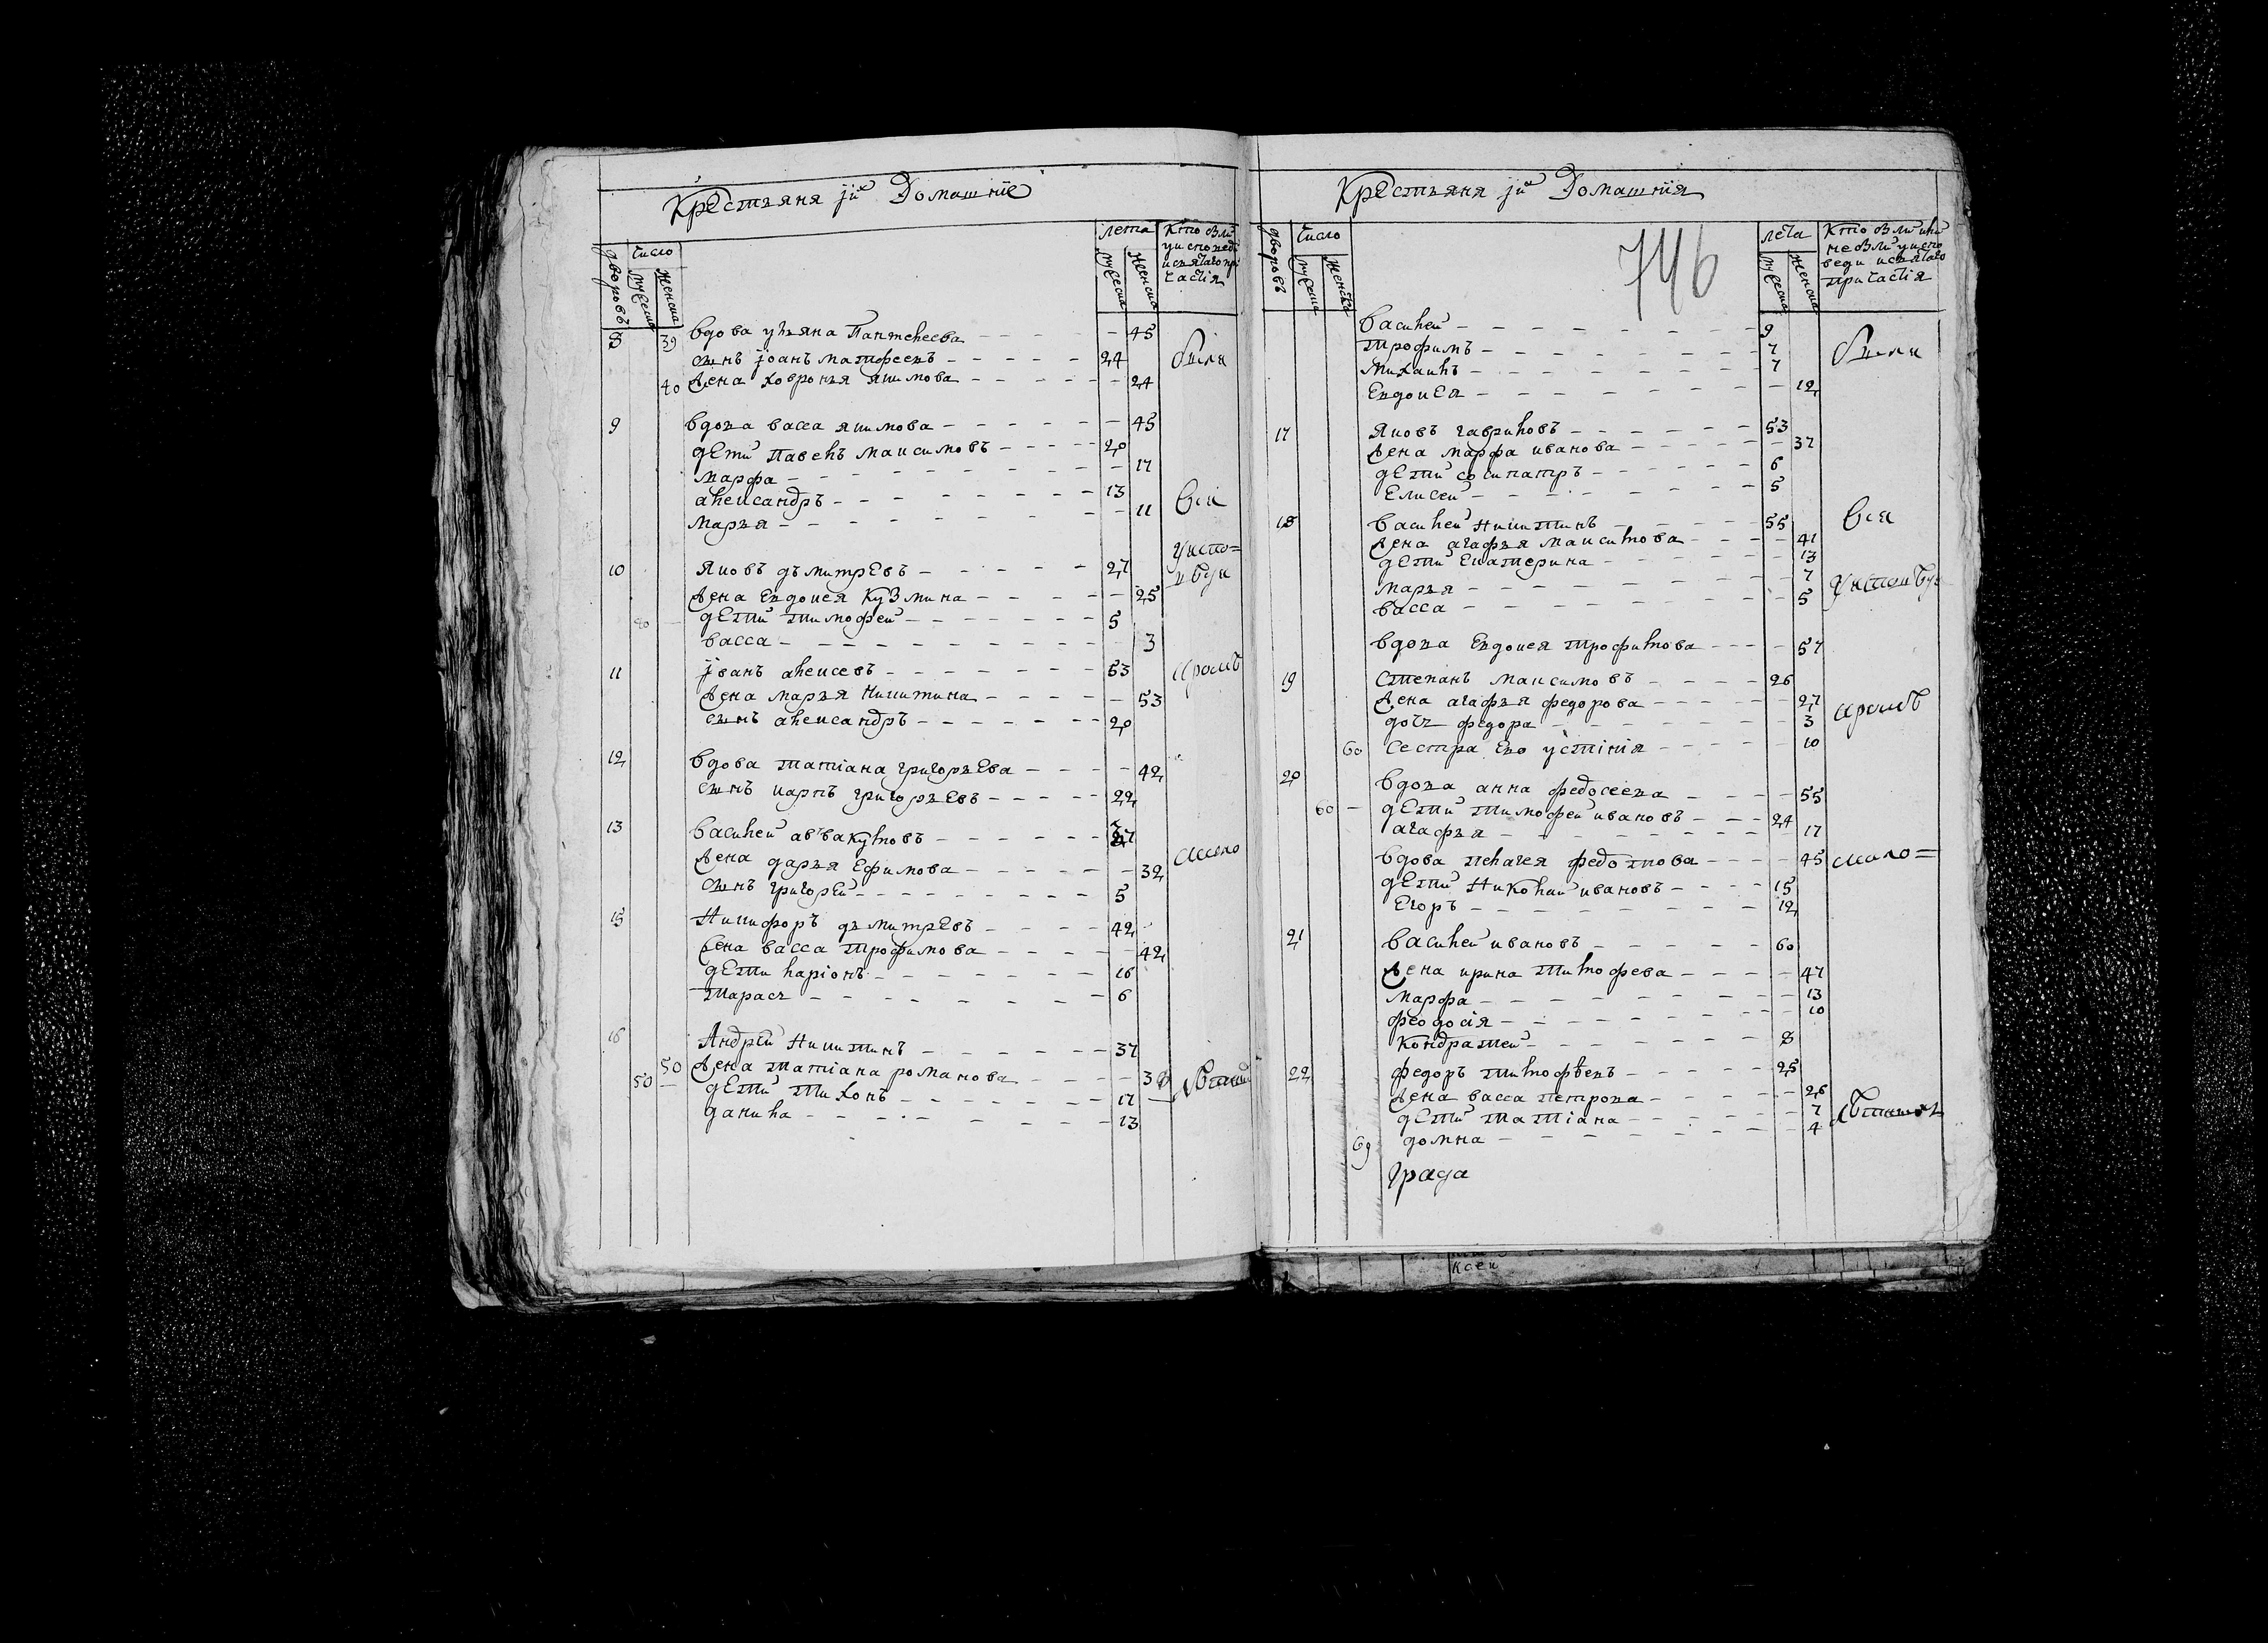 Крестьяня их Домашние
дворовъ
число
мужеска
женска
лета
мужеска
женска
Кто былъ
у исповеди
и святаго при
частія
8 39 вдова ульяна Пантелеева — 45
сынъ іоанъ матфеевъ — 24
40 жена ховронья якимова — 24
были
9 вдова васса якимова — 45
дети Павелъ максимовъ — 20
марфа — 17
александръ — 13
марья — 11
вси
у испо=
веди
10 яковъ дьмитревъ — 27
жена евдокея кузмина — 25
40 дети тимофей — 5
васса — 3
11 іванъ алексевъ — 53
кромѣ
жена марья никитина — 53
сынъ александръ — 20
12 вдова татіана григорьева — 42
сынъ карпъ григорьевъ — 22
13 василей аввакумовъ — 37
жена дарья ефимова — 32
мало
сынъ григорей — 5
15 никифоръ дьмитревъ — 42
жена васса трофимова — 42
дети ларіонъ — 16
тарасъ — 6
16 Андрей никитинъ — 37
50 жена татіана романова — 38
50 дети тихонъ — 17
данила — 13
летнихъ
Крестьяня их Домашнія
746
дворовъ
число
мужеска
женска
лета
мужеска
женска
Кто былъ или
не былъ у испо
веди и святаго
причастія
василей — 9
трофимъ — 7
михаилъ — 7
евдокея — 12
были
17 яковъ гавриловъ — 53
жена марфа иванова — 37
дети сосипатръ — 6
елисей — 5
вси
18 василей никитинъ — 55
жена агафья максимова — 41
дети екатерина — 13
марья — 7
васса — 5
у исповеди
вдова евдокея трофимова — 57
19 степанъ максимовъ — 26
жена агафья федорова — 27
дочь федора — 3
кромѣ
60 сестра ево устінія — 10
20 вдова анна федосеева — 55
60 дети тимофей ивановъ — 24
агафья — 17
вдова пелагея федотова — 45
мало=
дети николай ивановъ — 15
егоръ — 12
21 василей ивановъ — 60
жена ирина тимофева — 47
марфа — 13
феодосія — 10
кондратей — 8
22 федоръ тимофѣевъ — 25
жена васса петрова — 26
дети татіана — 7
69 домна — 4
летнихъ
града